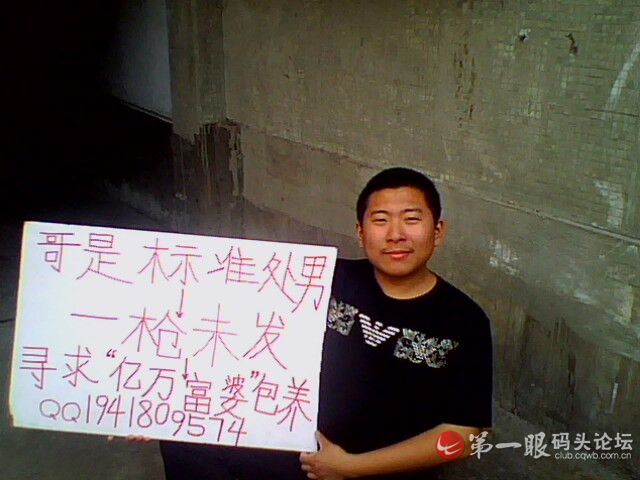 哥是标准处男
一枪未发
寻求“亿万富婆”包养
QQ1941809574
第一眼码头论坛
club.cqwb.com.cn